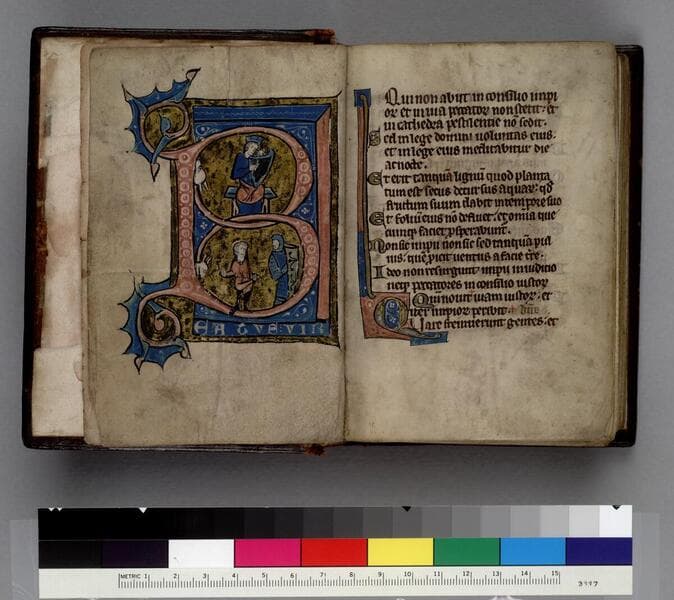 B
EATVS·VIR
Qui non abiit in consilio impi
or et in via pctator non stetit· et
in cathedra pestilentie nō sedit·
Set in lege domini uoluntas eius·
et in lege eius meditabitur die
ac nocte·
Et erit tanquā lignū quod planta
tum est secus decursus aquar· qd
fructum suum dabit in tempore suo
Et foliū eius nō defluet· et omia que
cumqz faciet psperabunt·
Non sic impii non sic sed tanquā pul
uis· que picit uentus a facie tre·
Ideo non resurgunt impii in iuditio
neqz peccatores in consilio iustor
Qm nouit uiam iustor· et
iter impior peribit·
Quare fremuerunt gentes· et
METRIC 1 2 3 4 5 6 7 8 9 10 11 12 13 14 15